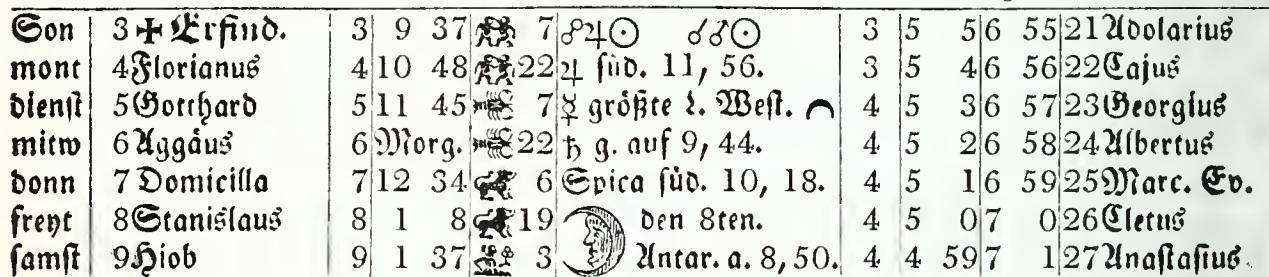 Son 3 ✠ Erfind. 3 9 37 7 ☍♃☉ ☌♂☉ 3 5 5 6 55 21 Adolarius
mont 4 Florianus 4 10 48 22 ♃ süd. 11, 56. 3 5 4 6 56 22 Cajus
dienst 5 Gotthard 5 11 45 7 ☿ größte l. West. 4 5 3 6 57 23 Georgius
mitw 6 Aggäus 6 Morg. 22 ♄ g. auf 9, 44. 4 5 2 6 58 24 Albertus
donn 7 Domicilla 7 12 34 6 Spica süd. 10, 18. 4 5 1 6 59 25 Marc. Ev.
freyt 8 Stanislaus 8 1 8 19 den 8ten. 4 5 0 7 0 26 Cletus
samst 9 Hiob 9 1 37 3 Antar. a. 8, 50. 4 4 59 7 1 27 Anastasius